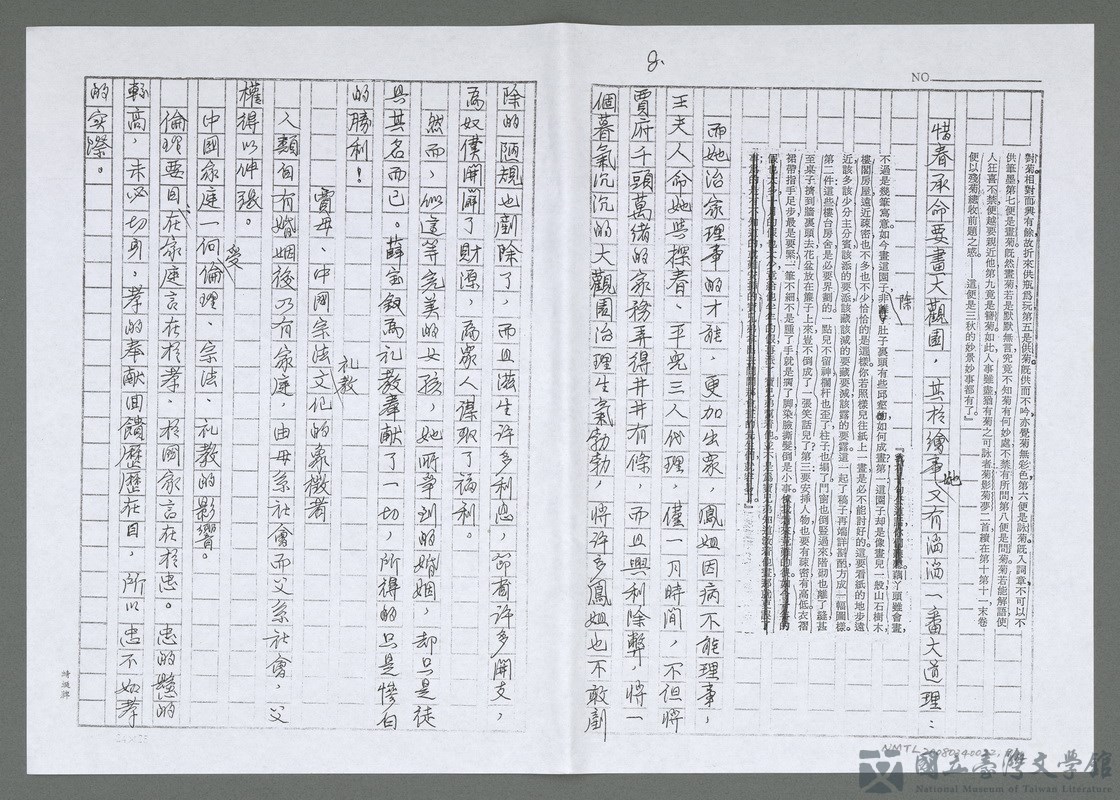 8.
NO
對菊相對而興有餘故折來供瓶爲玩第五是供菊旣供而不吟亦覺菊無彩色第六便是詠菊旣入詞章不可以不
供筆墨第七便是畫菊旣然畫菊若是默默無言究竟不知菊有何妙處不禁有所問第八便是問菊菊若能解語使
人狂喜不禁便越要親近他第九竟是簪菊如此人事雖盡猶有菊之可詠者菊影菊夢二首續在第十第十一末卷
便以殘菊總收前題之感——這便是三秋的妙景妙事都有了』
惜春承命要畫大觀園，其於繪事她又有滔滔一番大道理：
藕丫頭雖會畫
不過是幾筆寫意如今畫這園子非離了肚子裏頭有些邱壑的如何成畫第一這園子却是像畫兒一般山石樹木
樓閣房屋遠近疎密也不多也不少恰恰的是這樣你若照樣兒往紙上一畫是必不能討好的這要看紙的地步遠
近該多該少分主分賓該添的要添該藏該減的要藏要減該露的要露這一起了稿子再端詳斟酌方成一幅圖樣
第二件這些樓台房舍是必要界劃的一點兒不留神欄杆也歪了柱子也塌了門窗也倒豎過來階砌也離了縫甚
至桌子擠到牆裏頭去花盆放在簾子上來豈不倒成了一張笑話兒了第三要安插人物也要有疎密有高低衣褶
裙帶指手足步最是要緊一筆不細不是腫了手就是瘸了脚染臉撕髮倒是小事
除
而她治家理事的才能，更加出衆，鳳姐因病不能理事，
王夫人命她與探春、平兒三人代理，僅一月時間，不但將
賈府千頭萬緒的家務弄得井井有條，而且興利除弊，將一
個暮氣沉沉的大觀園治理生氣勃勃，將許多鳳姐也不敢剷
除的陋規也剷除了，而且滋生许多利息，節省许多開支，
為奴僕開闢了財源，為衆人謀取了福利。
然而，似這等完美的女孩，她所爭到的婚姻，却只是徒
具其名而已。薛宝釵為礼教奉献了一切，所得的只是慘白
的勝利！
賈母、中國宗法礼教文化的象徵者
人類自有婚姻後乃有家庭，由母系社會而父系社會，父
權得以伸張。
中國家庭一向受倫理、宗法、礼教的影響。
倫理要目，在家庭言在於孝、於國家言在於忠。忠的
較高，未必切身，孝的奉献回饋歷歷在目，所以忠不如孝
的实際。
NMTL
國立臺灣文學館
National Museum of Taiwan Literature